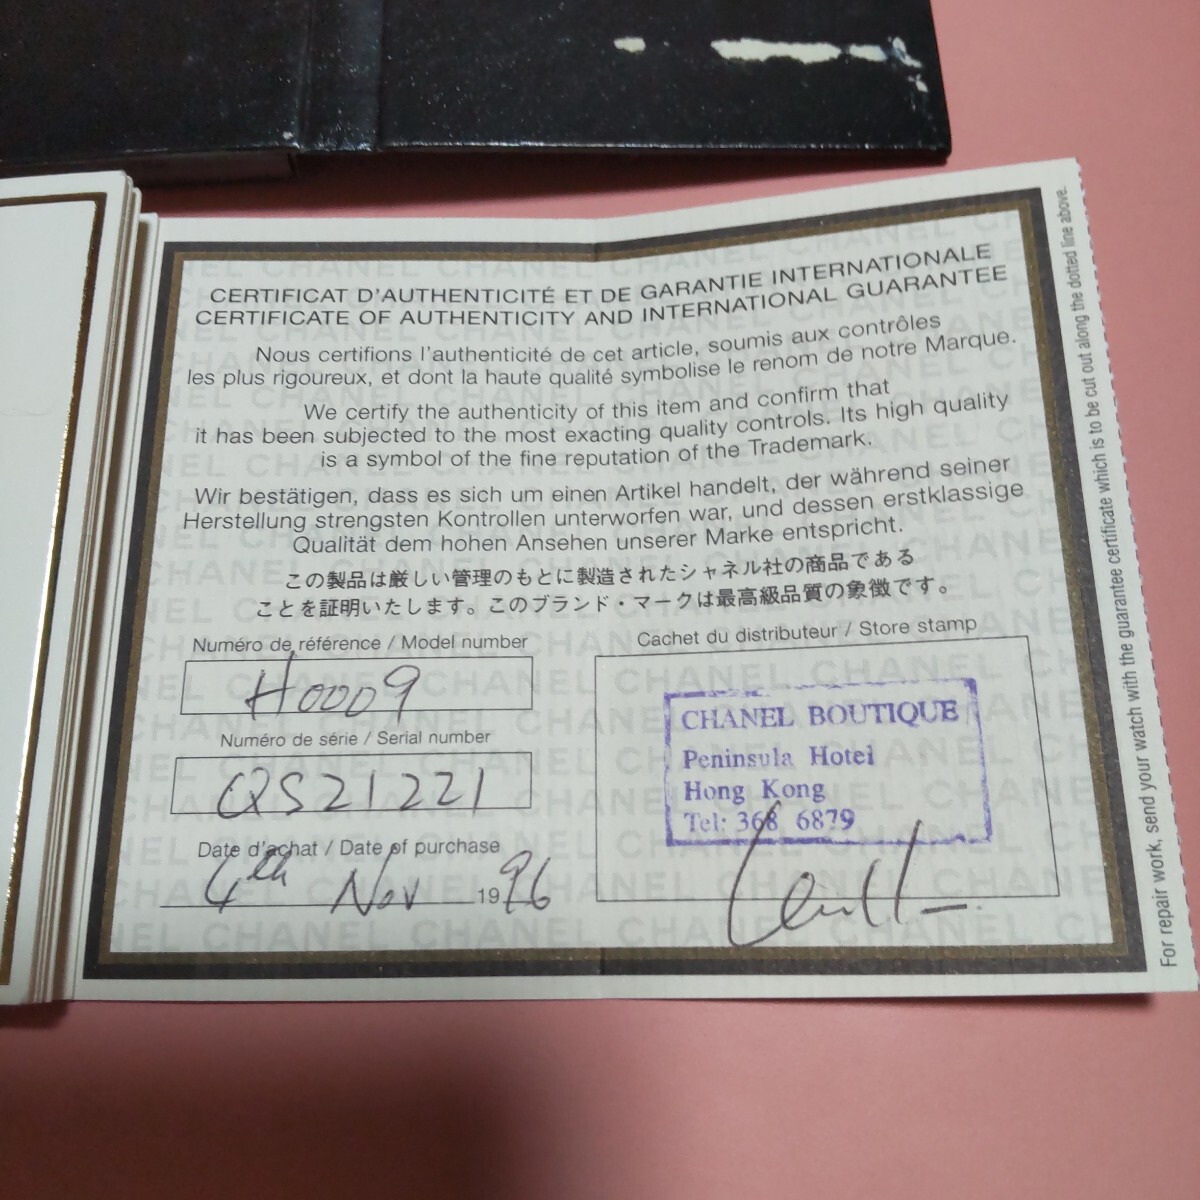 CERTIFICAT D'AUTHENTICITÉ ET DE GARANTIE INTERNATIONALE
CERTIFICATE OF AUTHENTICITY AND INTERNATIONAL GUARANTEE
Nous certifions l'authenticité de cet article, soumis aux contrôles
les plus rigoureux, et dont la haute qualité symbolise le renom de notre Marque.
We certify the authenticity of this item and confirm that
it has been subjected to the most exacting quality controls. Its high quality
is a symbol of the fine reputation of the Trademark.
Wir bestätigen, dass es sich um einen Artikel handelt, der während seiner
Herstellung strengsten Kontrollen unterworfen war, und dessen erstklassige
Qualität dem hohen Ansehen unserer Marke entspricht.
この製品は厳しい管理のもとに製造されたシャネル社の商品である
ことを証明いたします。このブランド・マークは最高級品質の象徴です。
Numéro de référence / Model number
H0009
Numéro de série / Serial number
QS21221
Date d'achat / Date of purchase
4th Nov 1996
Cachet du distributeur / Store stamp
CHANEL BOUTIQUE
Peninsula Hotel
Hong Kong
Tel: 368 6879
For repair work, send your watch with the guarantee certificate which is to be cut out along the dotted line above.